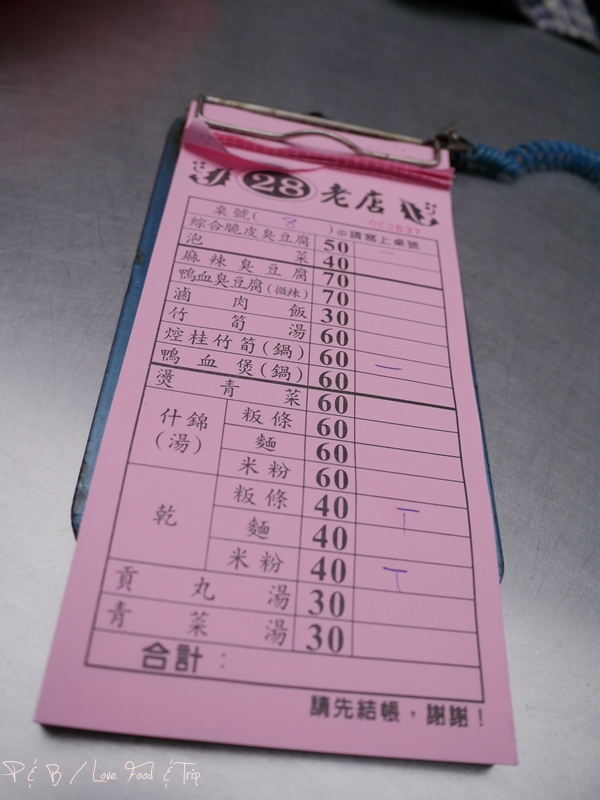 28 老店
002637
桌號( 8 )※請寫上桌號
綜合脆皮臭豆腐 50 一
泡菜 40
麻辣臭豆腐 70
鴨血臭豆腐(微辣) 70
滷肉飯 30
竹筍湯 60
焢桂竹筍(鍋) 60 一
鴨血煲(鍋) 60
燙青菜 60
什錦(湯) 粄條 60
麵 60
米粉 60
乾 粄條 40 T
麵 40
米粉 40 T
貢丸湯 30
青菜湯 30
合計:
請先結帳,謝謝!
P & B / Love Food & Trip